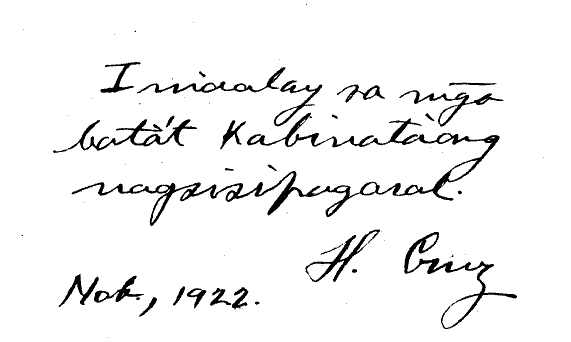 Iniaalay sa mg̃a
batà't kabinataang
nagsisipagaral.
H. Cruz
Nob., 1922.